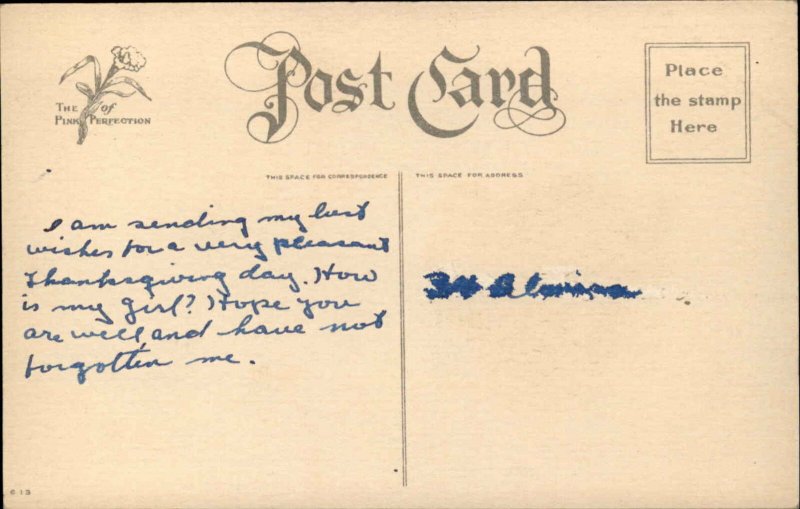 Post Card
THE of
PINK PERFECTION
Place
the stamp
Here
THIS SPACE FOR CORRESPONDENCE
THIS SPACE FOR ADDRESS
I am sending my best
wishes for a very pleasant
Thanksgiving day. How
is my girl? Hope you
are well and have not
forgotten me.
613